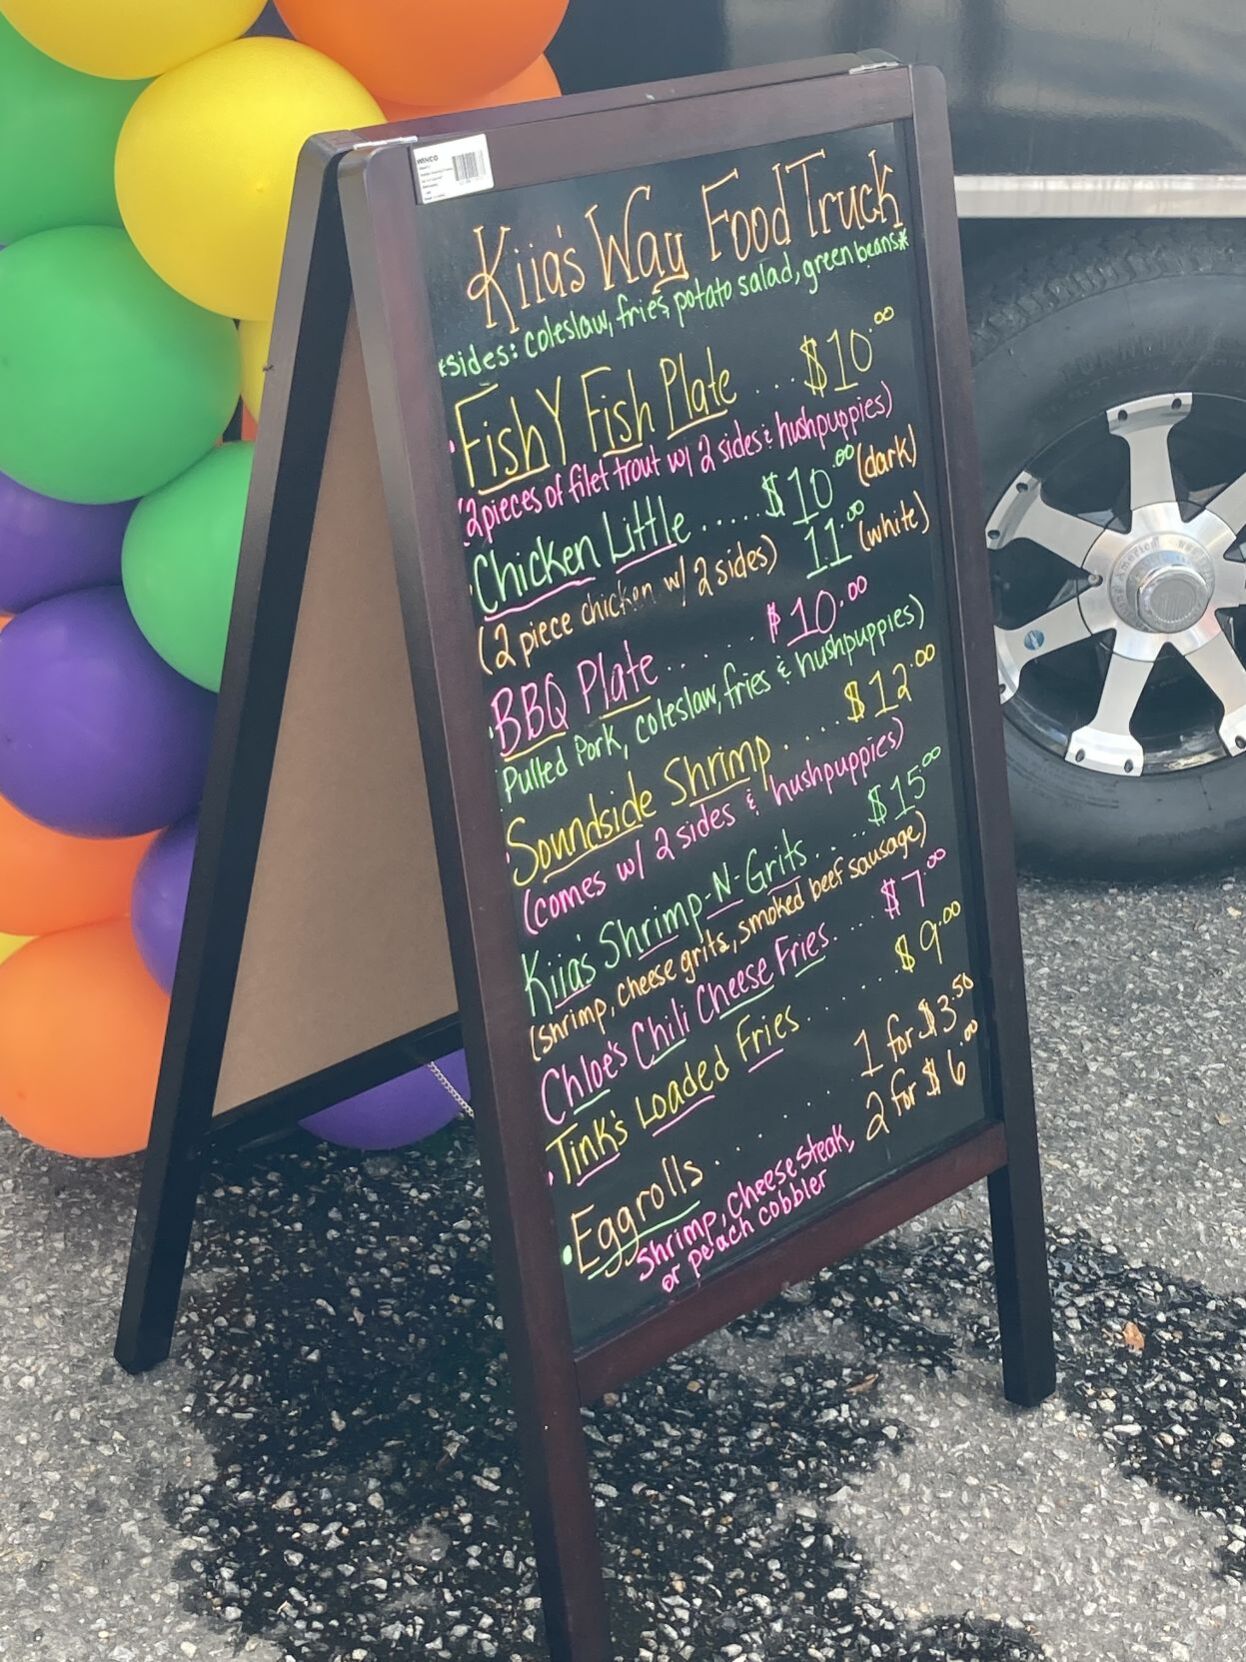 WINCO
Kiia's Way Food Truck
*sides: coleslaw, fries, potato salad, green beans*
Fishy Fish Plate .... $10.00
(2 pieces of filet trout w/ 2 sides & hushpuppies)
Chicken Little ...... $10.00 (dark)
(2 piece chicken w/ 2 sides) 11.00 (white)
BBQ Plate ...... $10.00
Pulled Pork, coleslaw, fries & hushpuppies)
Soundside Shrimp .... $12.00
(comes w/ 2 sides & hushpuppies)
Kiia's Shrimp-N-Grits .... $15.00
(shrimp, cheese grits, smoked beef sausage)
Chloe's Chili Cheese Fries .... $7.00
Tink's Loaded Fries ...... $9.00
Eggrolls ...... 1 for $3.50
2 for $6.00
Shrimp, cheesesteak,
or peach cobbler